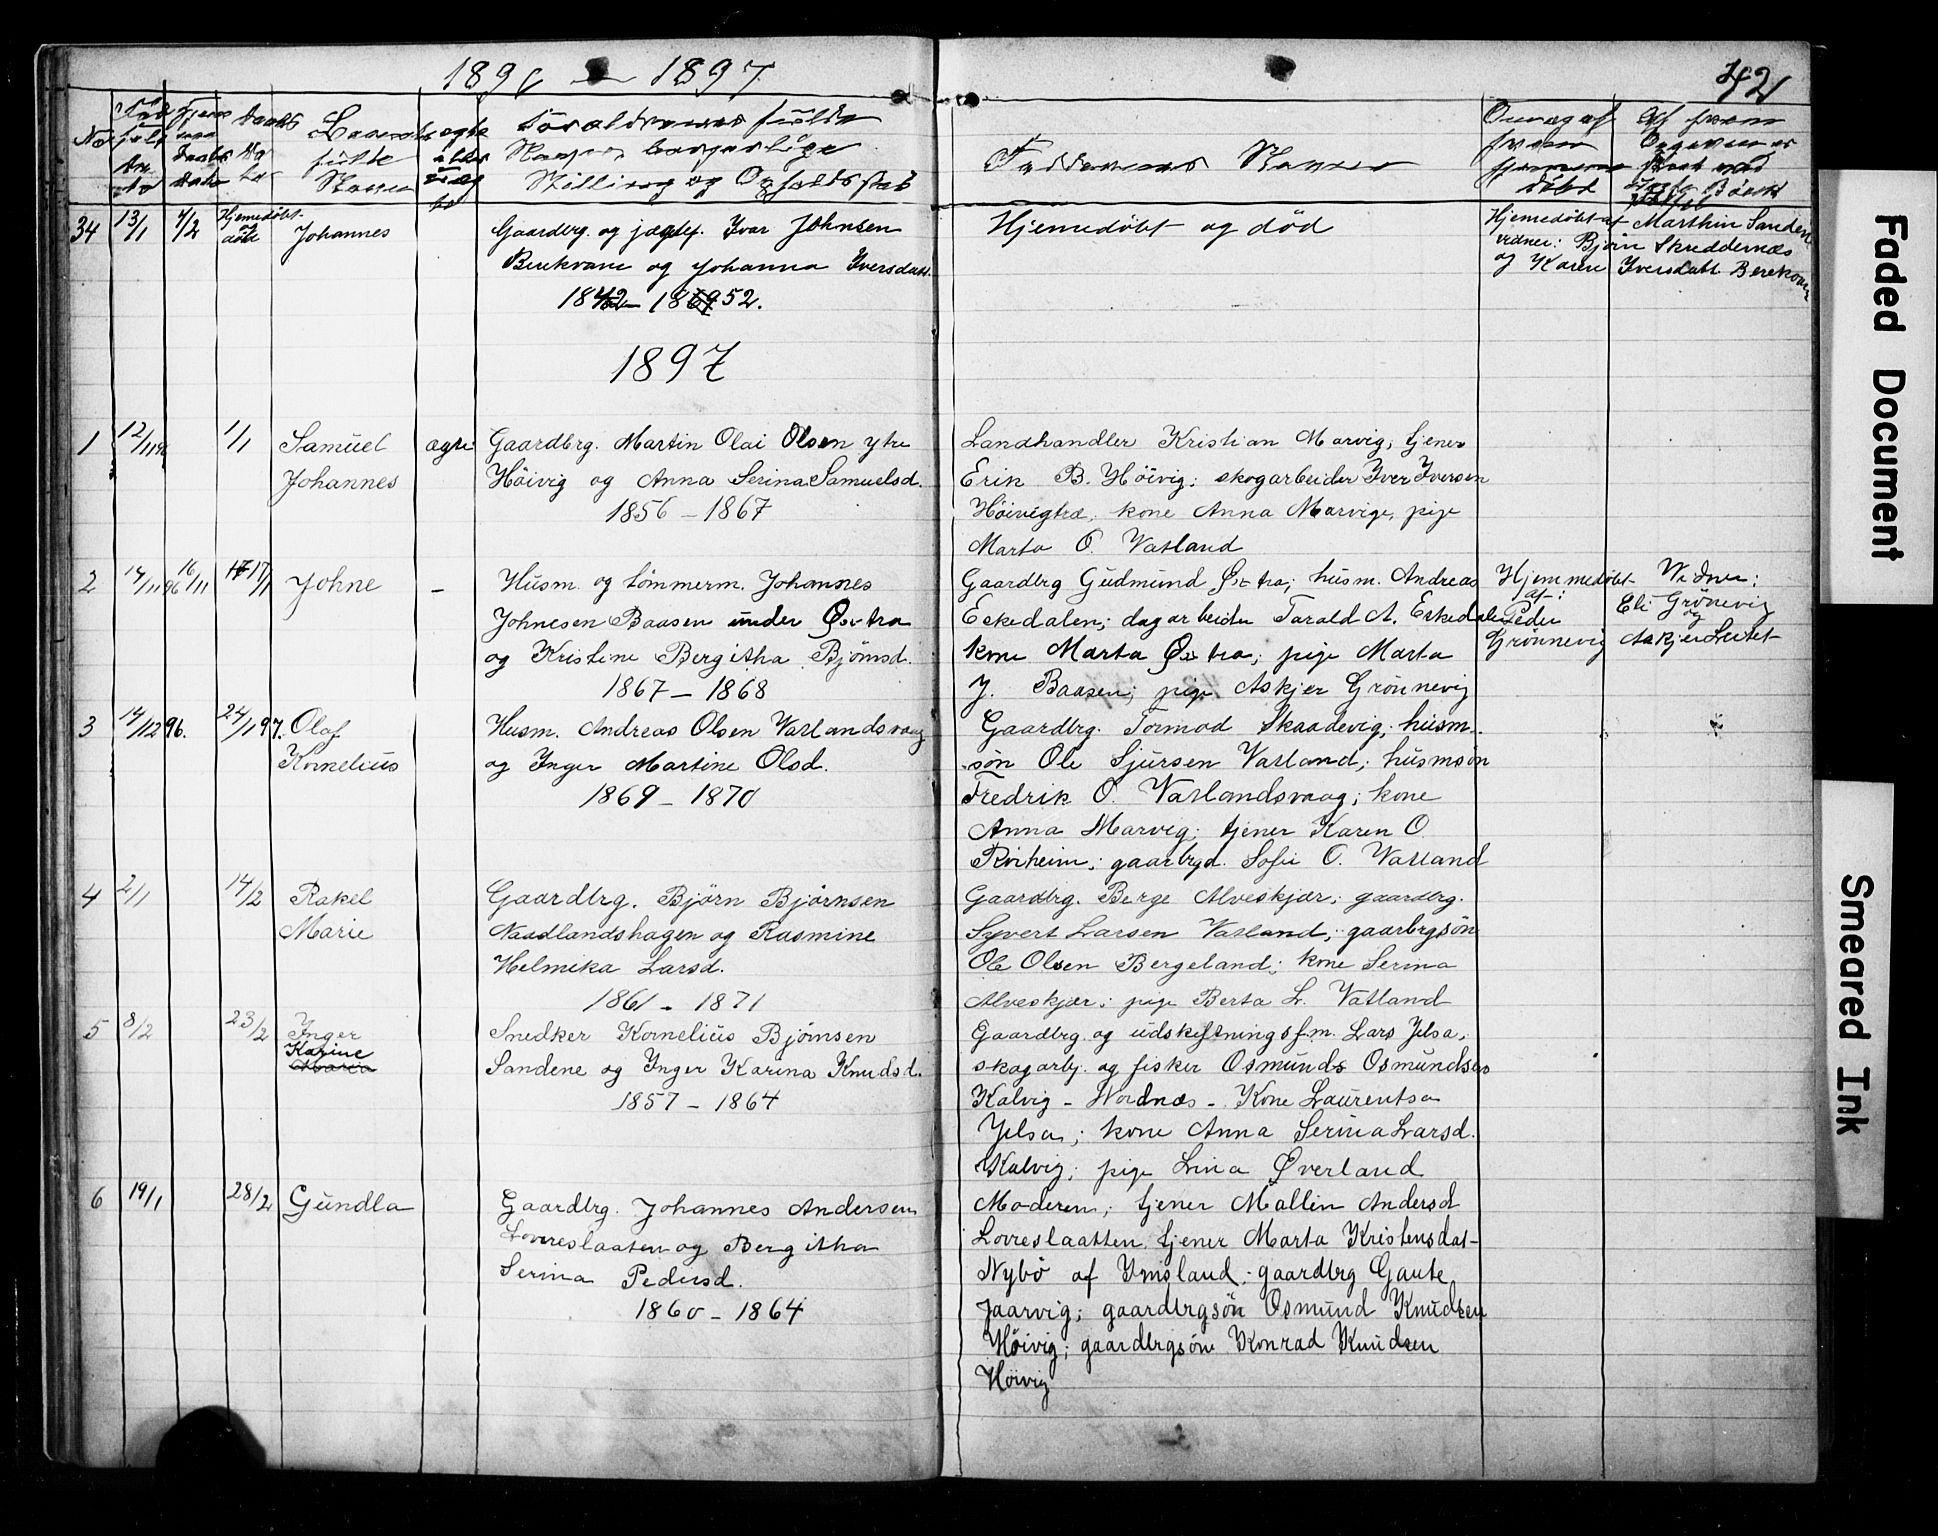 1896 — 1897
42
No
Barnets
fulde
Navn
ægte
eller
uæg
te
Forældrenes fulde
Navn, borgerlige
Stilling og Opholdssted
Faddernes Navne
Om og af
hvem
hjemme
døbt
34 13/1 4/2 Hjemedøbt og død Johannes
Gaardbrg. og jægtef. Ivar Johnsen
Berekvam og Johanna Iversdatt.
1842 – 1869 52.
Hjemedöbt og död
Hjemedöbt af Marthin Sandene
vidner: Björn Skreddernæs
og Karen Iversdatt Berekvam
1897
1 12/11 96 1/1 Samuel
Johannes
ægte
Gaardbrg. Martin Olai Olsen ytre
Höivig og Anna Serina Samuelsd.
1856 – 1867
Landhandler Kristian Marvig, tjener
Erik B. Höivig; skogarbeider Iver Iversen
Höivigtræ; kone Anna Marvige, pige
Marta O. Vatland
2 14/11 96 16/11 17/1 Johne –
Husm. og tömmerm. Johannes
Johnesen Baasen under Östra
og Kristine Bergitha Björnsd.
1867 – 1868
Gaardbrg Gudmund Östra; husm. Andreas
Eskedalen; dagarbeider Tarald A. Eskedalen
kone Marta Östra; pige Marta
J. Baasen; pige Askjer Grönnevig
Hjemmedöbt
af:
Peder
Grönnevig
Vidner:
Eli Grönevig
og
Askjer
3 14/12 96. 24/1 97. Olaf
Kornelius
Husm. Andreas Olsen Vatlandsvaag
og Inger Martine Olsd.
1869 – 1870
Gaardbrg. Tormod Skaadevig; husm.
sön Ole Sjursen Vatland; husmsön
Fredrik O. Vatlandsvaag; kone
Anna Marvig; tjener Karen O.
Roiheim; gaarbrgd. Sofie O. Vatland
4 2/1 14/2 Rakel
Marie
Gaardbrg. Björn Björnsen
Naadlandshagen og Rasmine
Helmika Larsd.
1861 – 1871
Gaardbrg. Berge Alveskjær; gaardbrg.
Syvert Larsen Vatland; gaarbrgsön
Ole Olsen Bergeland; kone Serina
Alveskjær; pige Berta L. Vatland
5 8/2 23/2 Inger
Karine
Maria
Snedker Kornelius Björnsen
Sandene og Inger Karina Knudsd.
1857 – 1864
Gaardbrg. og udskiftningsfm. Lars Jelsa;
skogarbj. og fisker Osmunds Osmundsen
Kalvig – Nordnæs – Kone Laurentsa
Jelsa; kone Anna Serina Larsd.
Kalvig; pige Lina Överland
6 19/1 28/2 Gundla
Gaardbrg. Johannes Andersen
Lovreslaaten og Bergitha
Serina Pedersd.
1860 – 1864
Moderen; tjener Mallin Andersd
Lovreslaatten. tjener Marta Kristensdat-
Nybö af Imsland; gaardbrg Gaute
Jaarvig; gaardbrgsön Osmund Knudsen
Höivig; gaardbrgsön Konrad Knudsen
Höivig
Faded Document
Smeared Ink